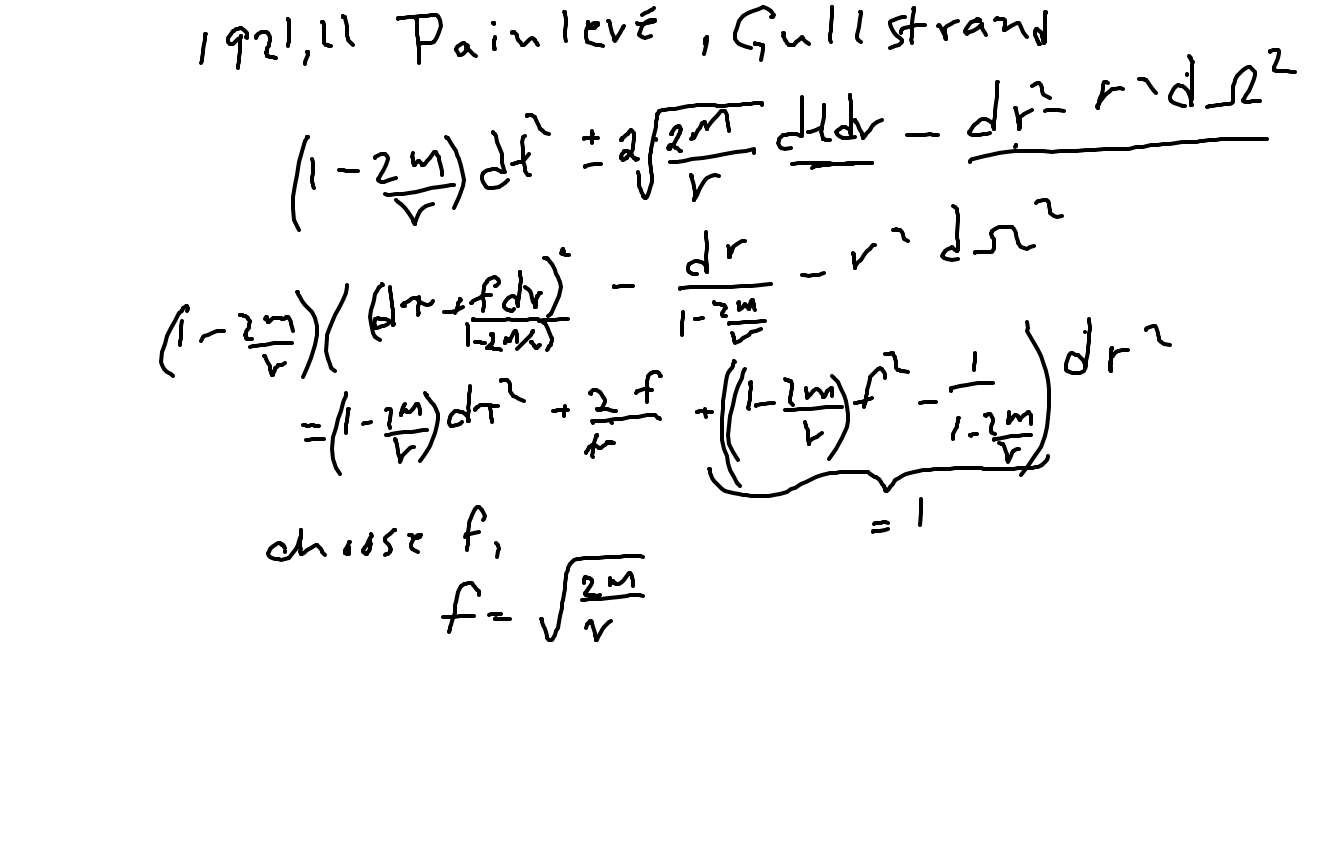 1921,11 Painlevé , Gullstrand
(1 - 2m/r) dt² ± 2√(2M/r) dtdr - dr² - r² dΩ²
(1 - 2m/r)( (dτ + f dr/(1-2M/r))² - dr/(1 - 2m/r) - r² dΩ²
= (1 - 2M/r) dτ² + 2 f/r + ((1 - 2m/r) f² - 1/(1 - 2m/r)) dr²
= 1
choose f,
f = √(2M/r)